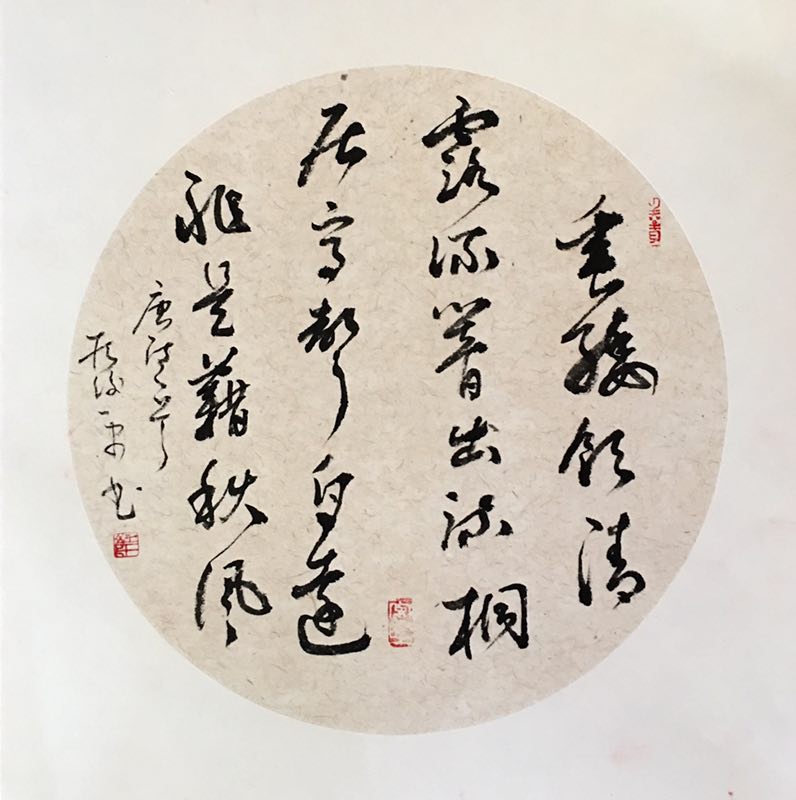 垂緌飲清
露流響出疏桐
居高聲自遠
非是藉秋風
唐詩一首
书